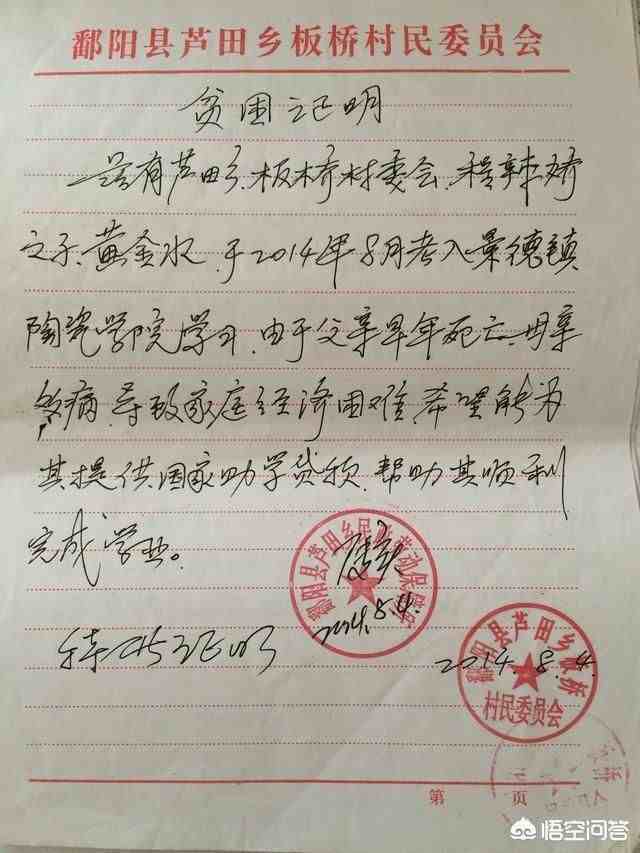 鄱阳县芦田乡板桥村民委员会
贫困证明
兹有芦田乡板桥村委会，程辣娇
之子，黄金水，于2014年8月考入景德镇
陶瓷学院学习，由于父亲早年死亡，母亲
多病，导致家庭经济困难，希望能为
其提供国家助学贷款，帮助其顺利
完成学业。
鄱阳县芦田乡民 劳动保障
属实
2014.8.4.
特此证明
2014.8.4.
鄱阳县芦田乡板桥
村民委员会
第 页
悟空问答